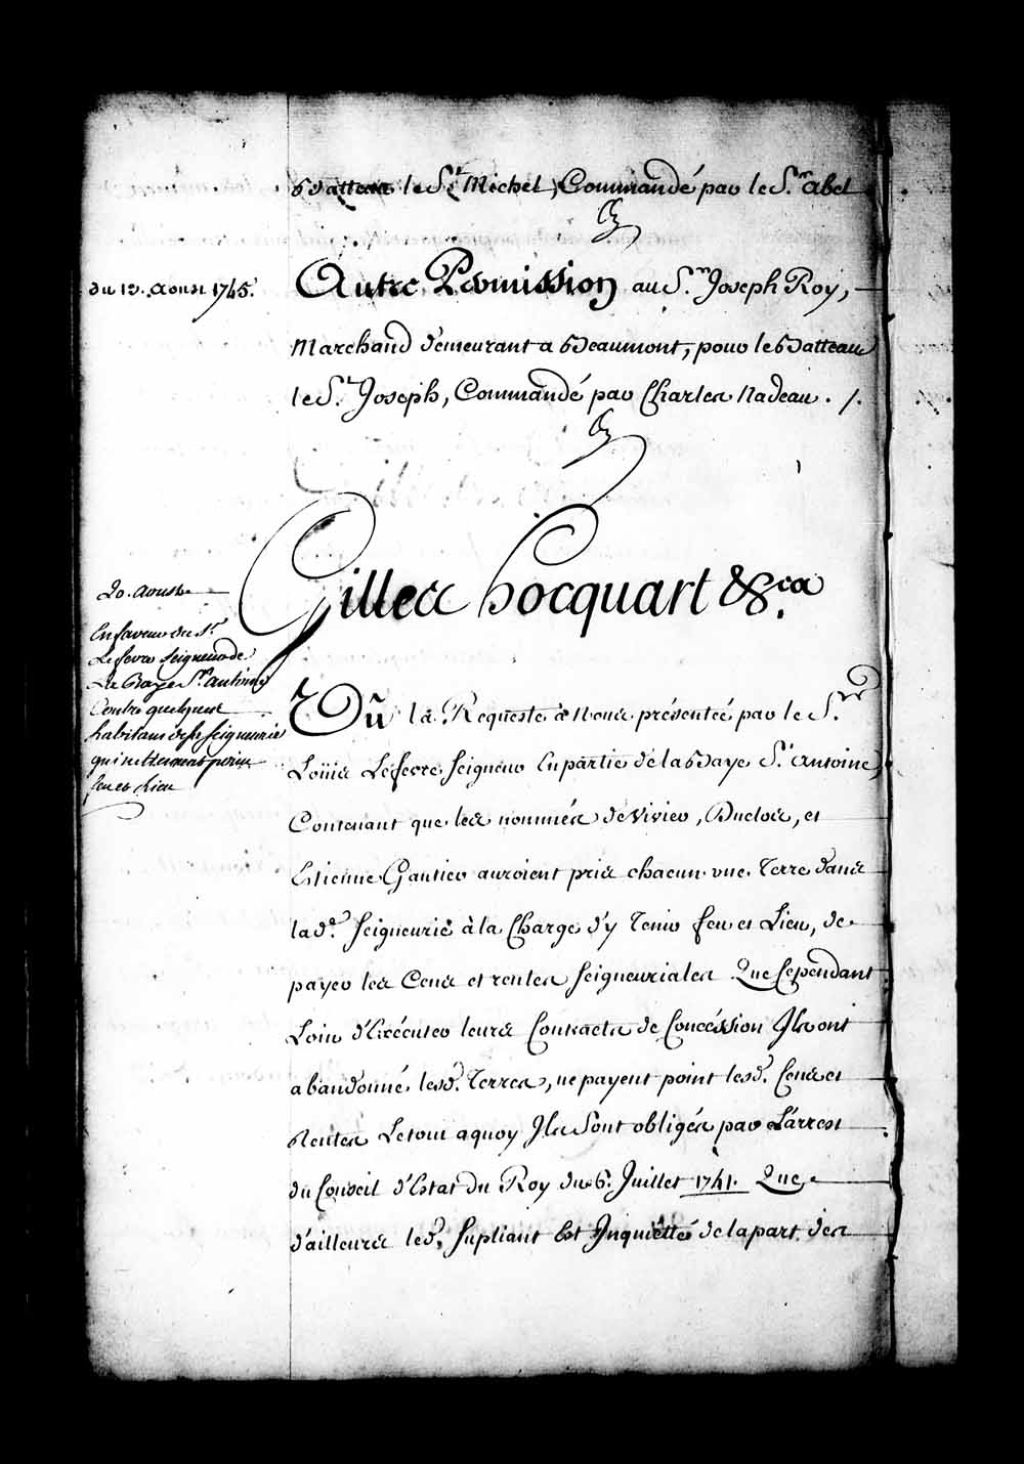 Batteau le St. Michel, Commandé par le Sr. Abel
du 12. Aoust 1745. Autre Permission au Sr. Joseph Roy,
Marchand demeurant a Beaumont, pour le Batteau
le St. Joseph, Commandé par Charles Nadeau ./.
Gilles hocquart &c.a
20. Aoust
En faveur du Sr.
Lefevre Seigneur de
La Baye St. Antoine
Contre quelques
habitans de sa Seigneurie
qui ne tiennent point
feu et Lieu
Vû la Requeste à Nous présentée par le Sr.
Loüis Lefevre Seigneur En partie de la Baye St. Antoine,
Contenant que les nommés de Vivier, Duclos, et
Etienne Gautier auroient pris chacun une Terre dans
lad.e Seigneurie à la Charge d'y Tenir feu et Lieu, de
payer les Cens et rentes Seigneuriales Que Cependant
Loin d'Exécuter leurs Contracts de Concéssion Ils ont
abandonné lesd. Terres, ne payent point lesd. Cens et
Rentes Le tout aquoy Ils Sont obligés par L'arrest
du Conseil d'Etat du Roy du 6. Juillet 1741. Que
d'ailleurs led. Supliant Est Inquietté de la part des